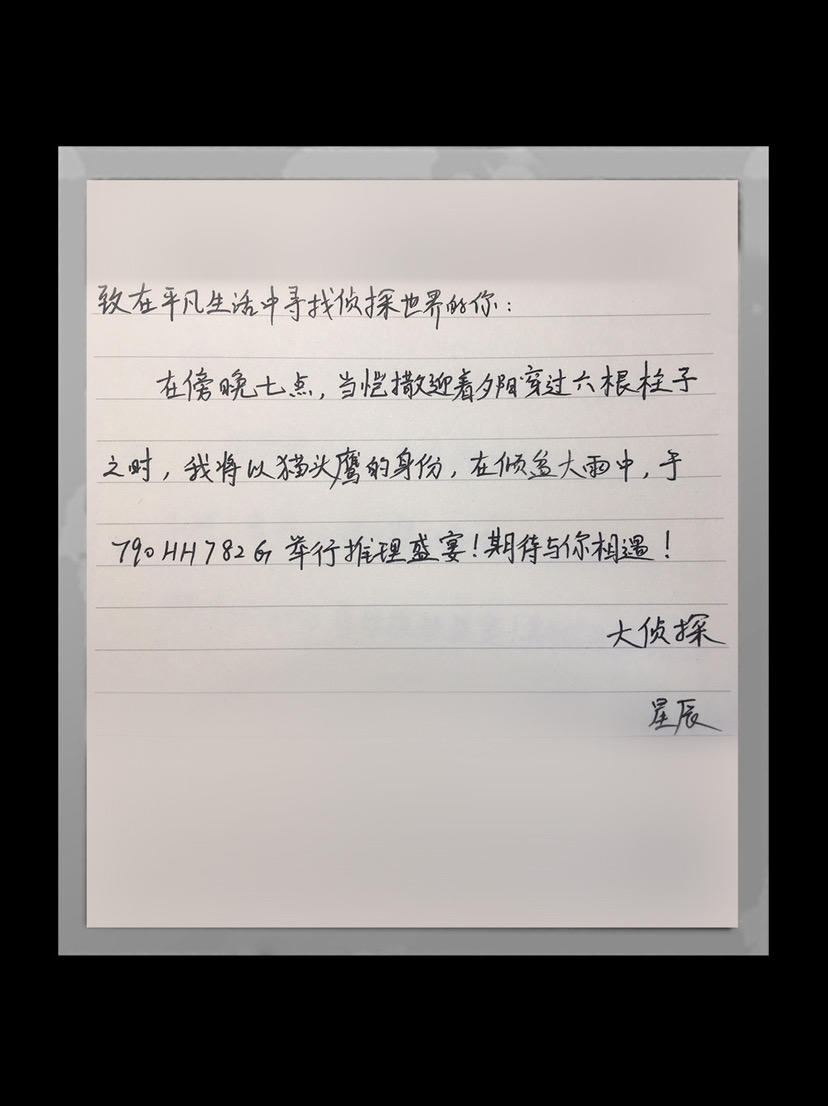 致在平凡生活中寻找侦探世界的你：
在傍晚七点，当恺撒迎着夕阳穿过六根柱子
之时，我将以猫头鹰的身份，在倾盆大雨中，于
790HH782G 举行推理盛宴！期待与你相遇！
大侦探
星辰